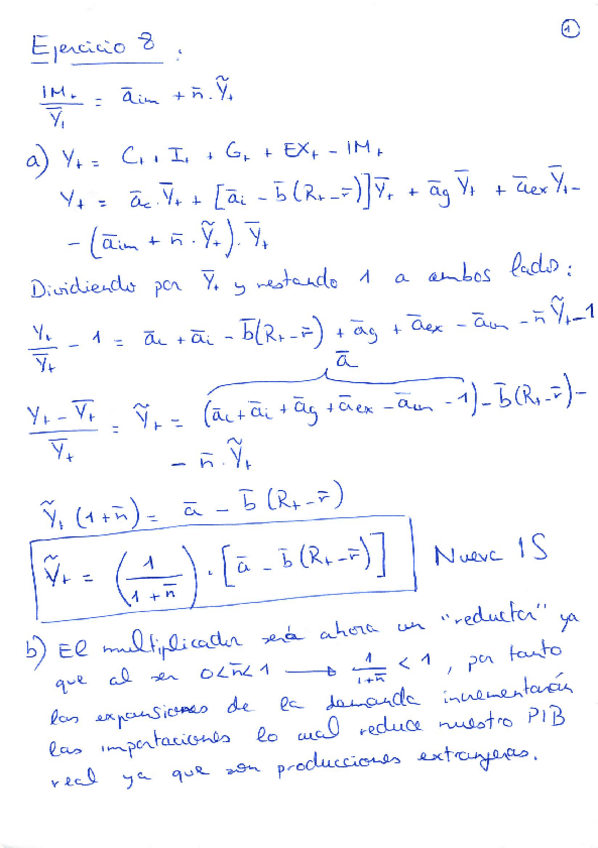 ①
Ejercicio 8 :
IM_t / Ȳ_t = ā_im + n̄ . Ỹ_t
a) Y_t = C_t + I_t + G_t + EX_t - IM_t
Y_t = ā_c . Ȳ_t + [ā_i - b̄ (R_t - r̄)] Ȳ_t + ā_g Ȳ_t + ā_ex Ȳ_t -
- (ā_im + n̄ . Ỹ_t) . Ȳ_t
Dividiendo por Ȳ_t y restando 1 a ambos lados :
Y_t / Ȳ_t - 1 = ā_c + ā_i - b̄ (R_t - r̄) + ā_g + ā_ex - ā_im - n̄ Ỹ_t - 1
ā
(Y_t - Ȳ_t) / Ȳ_t = Ỹ_t = (ā_c + ā_i + ā_g + ā_ex - ā_im - 1) - b̄ (R_t - r̄) -
- n̄ . Ỹ_t
Ỹ_t (1 + n̄) = ā - b̄ (R_t - r̄)
Ỹ_t = (1 / (1 + n̄)) . [ā - b̄ (R_t - r̄)] Nueva IS
b) El multiplicador será ahora un "reductor" ya
que al ser 0 < n̄ < 1 → 1 / (1 + n̄) < 1 , por tanto
las expansiones de la demanda incrementarán
las importaciones lo cual reduce nuestro PIB
real ya que son producciones extranjeras.